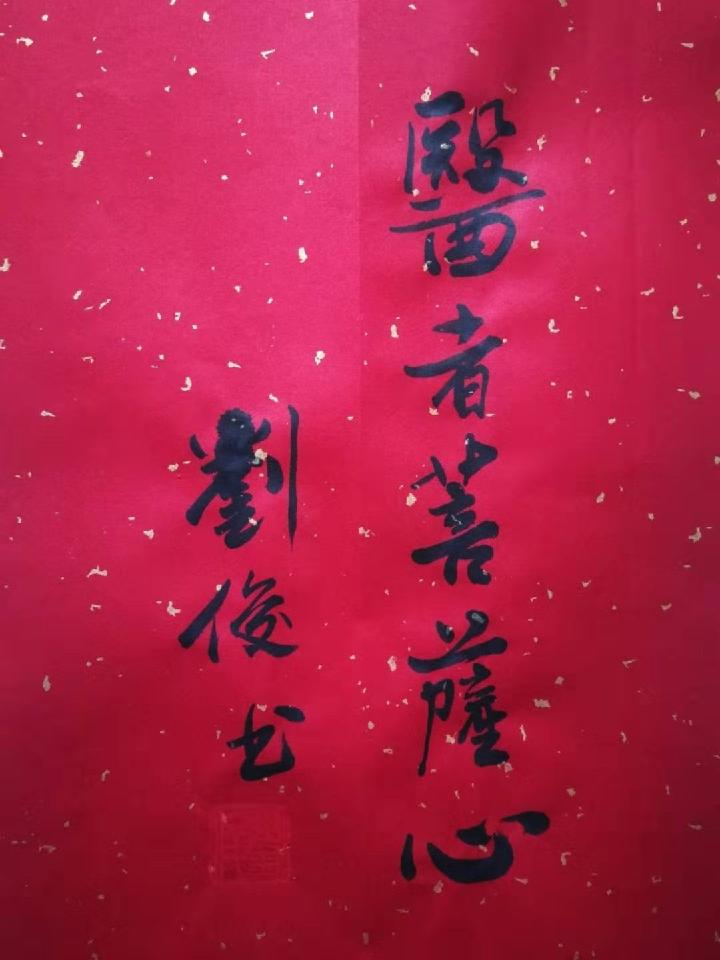 醫者菩薩心
劉俊书